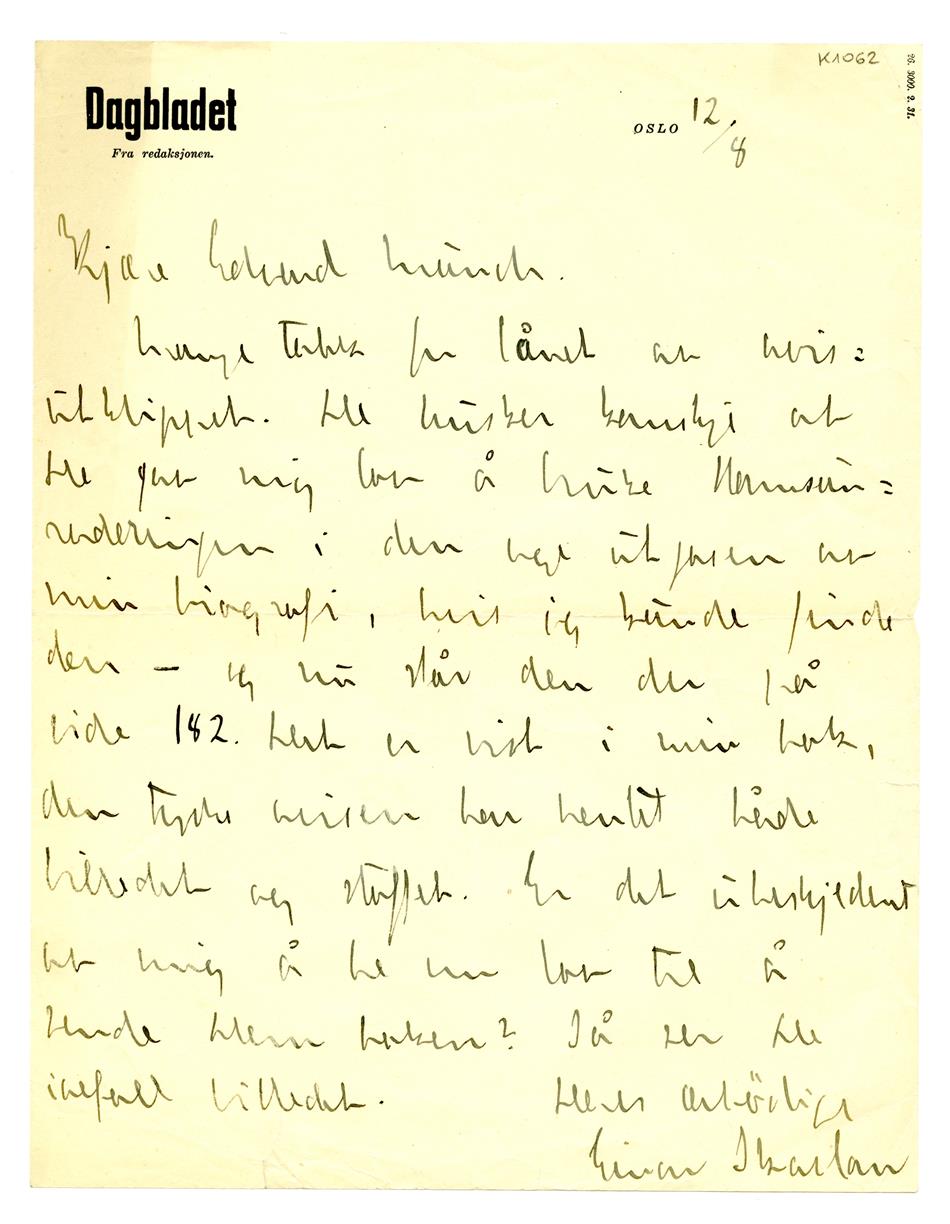 K1062
NG. 3000. 2. 31.
Dagbladet
Fra redaksjonen.
OSLO 12/8
Kjære Edvard Munch.
Mange takk for lånet av avis=
utklippet. De husker kanskje at
De gav mig lov å bruke Hamsun=
raderingen i den nye utgaven av
min biografi, hvis jeg kunde finde
den – og nu står den der på
side 182. Det er vist i min bok,
den tyske avisen har hentet både
billedet og stoffet. Er det ubeskjedent
av mig å be om lov til å
sende Dem boken? Så ser De
iallfall billedet.
Deres ærbödige
Einar Skavlan